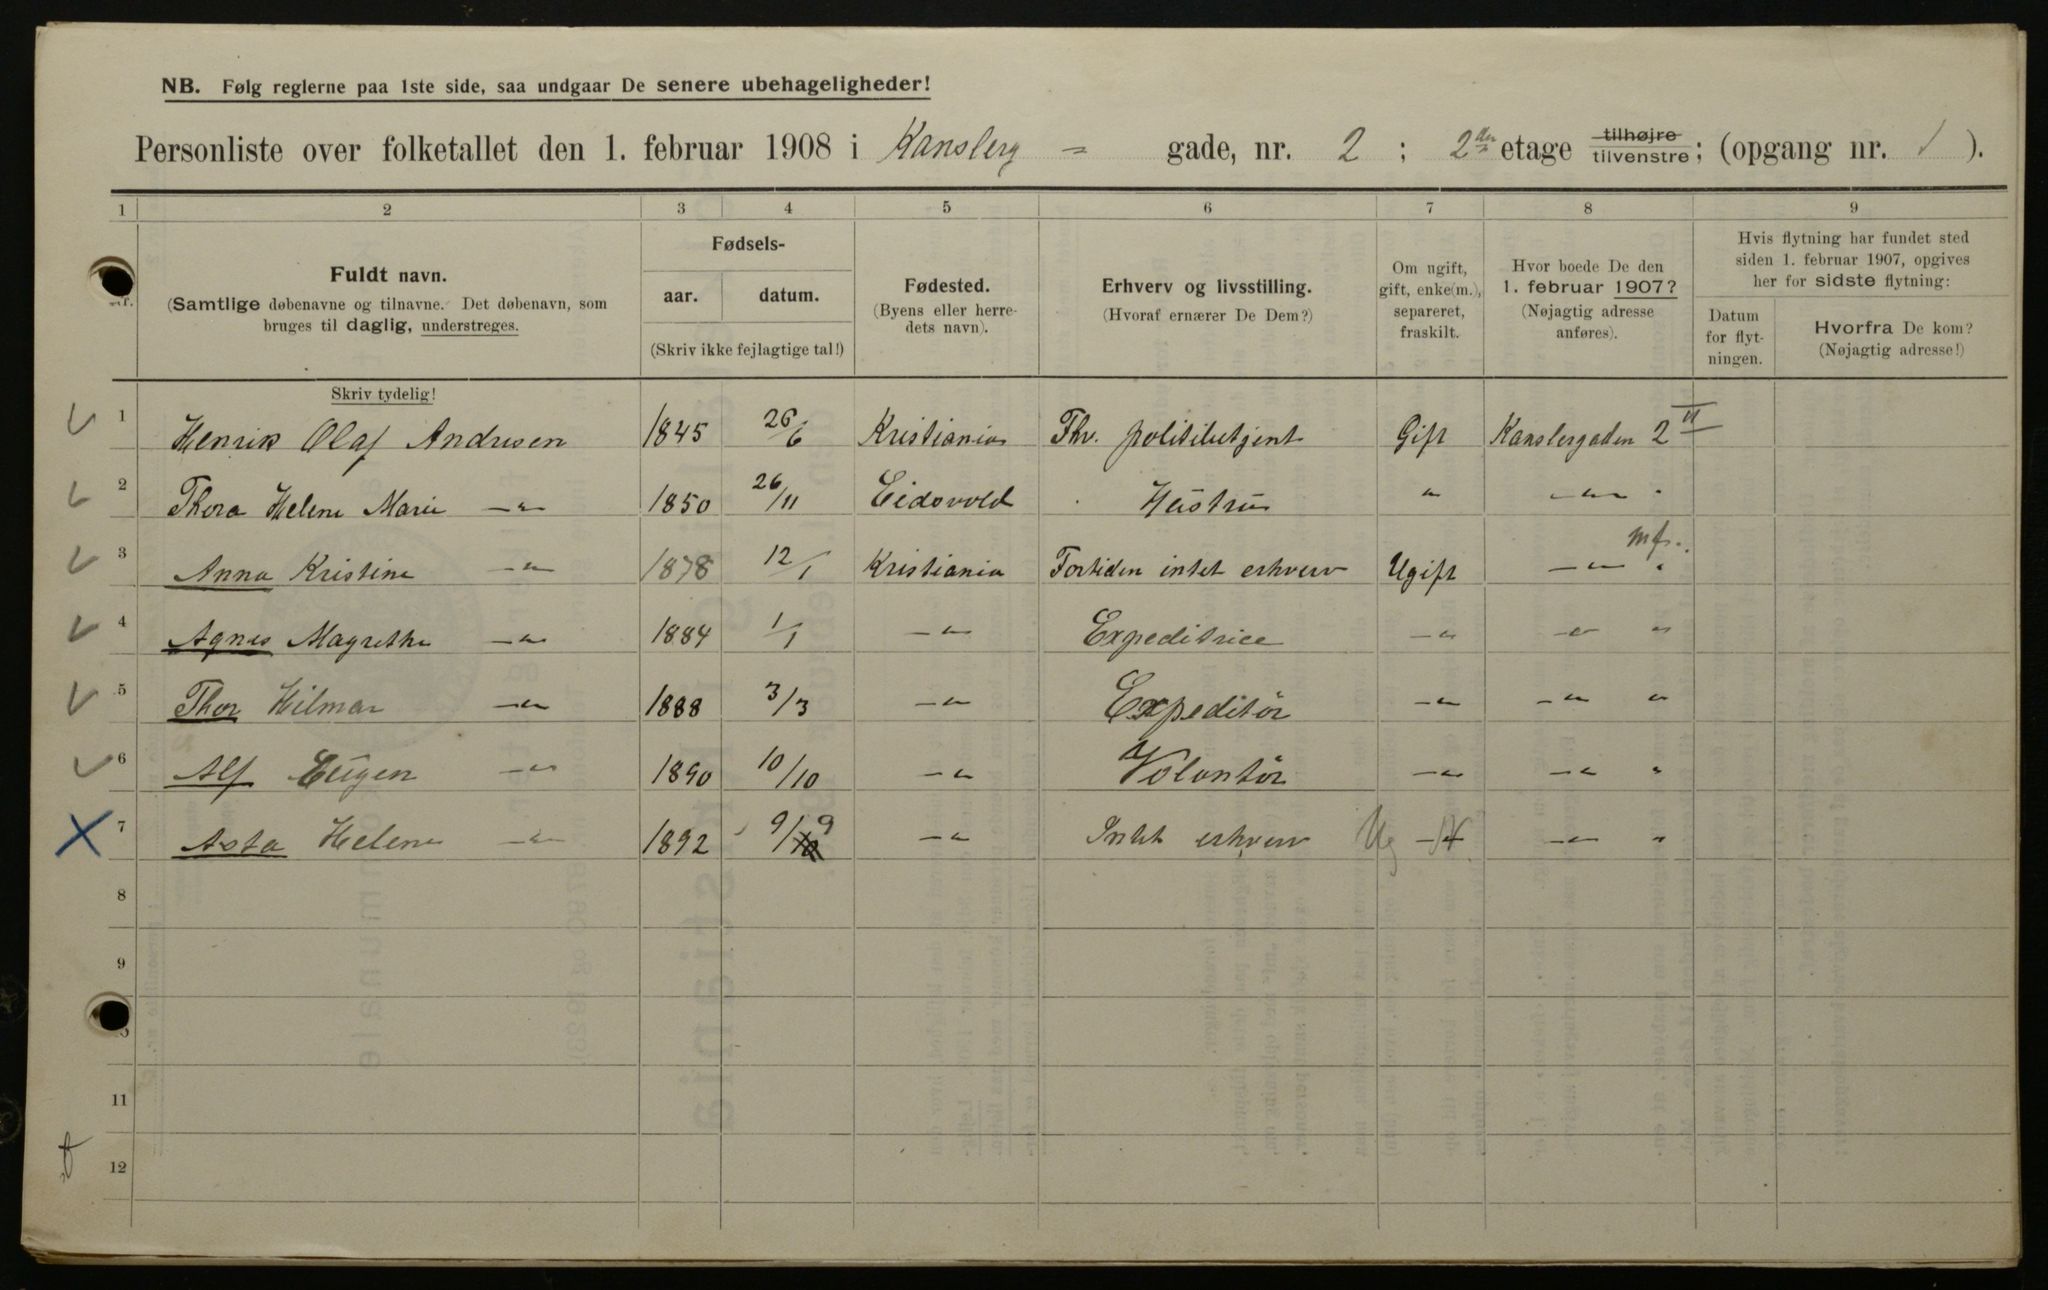 NB. Følg reglerne paa 1ste side, saa undgaar De senere ubehageligheder!
Personliste over folketallet den 1. februar 1908 i Kanslerg = gade, nr. 2 ; 2den etage tilhøjre tilvenstre; (opgang nr. 1 ).
1 2 3 4 5 6 7 8 9
Nr.
Fuldt navn.
(Samtlige døbenavne og tilnavne. Det døbenavn, som
bruges til daglig, understreges.
Fødsels-
aar. datum.
(Skriv ikke fejlagtige tal!)
Fødested.
(Byens eller herre-
dets navn).
Erhverv og livsstilling.
(Hvoraf ernærer De Dem?)
Om ugift,
gift, enke(m.),
separeret,
fraskilt.
Hvor boede De den
1. februar 1907?
(Nøjagtig adresse
anføres).
Hvis flytning har fundet sted
siden 1. februar 1907, opgives
her for sidste flytning:
Datum
for flyt-
ningen.
Hvorfra De kom?
(Nøjagtig adresse!)
Skriv tydelig!
1 Henrik Olaf Andresen 1845 26/6 Kristiania Fhv. politibetjent Gift Kanslergaden 2 II
2 Thora Helene Marie -"- 1850 26/11 Eidsvold Hustru " -"- "
3 Anna Kristine -"- 1878 12/1 Kristiania Fortiden intet erhverv Ugift -"- " mf.
4 Agnes Magrethe -"- 1884 1/1 -"- Expeditrice -"- -"- "
5 Thor Hilmar -"- 1888 3/3 -"- Expeditör -"- -"- "
6 Alf Eugen -"- 1890 10/10 -"- Volontör -"- -"- "
7 Asta Helene -"- 1892 9/9 -"- Intet erhverv Ug -"- -"- "
8
9
10
11
12